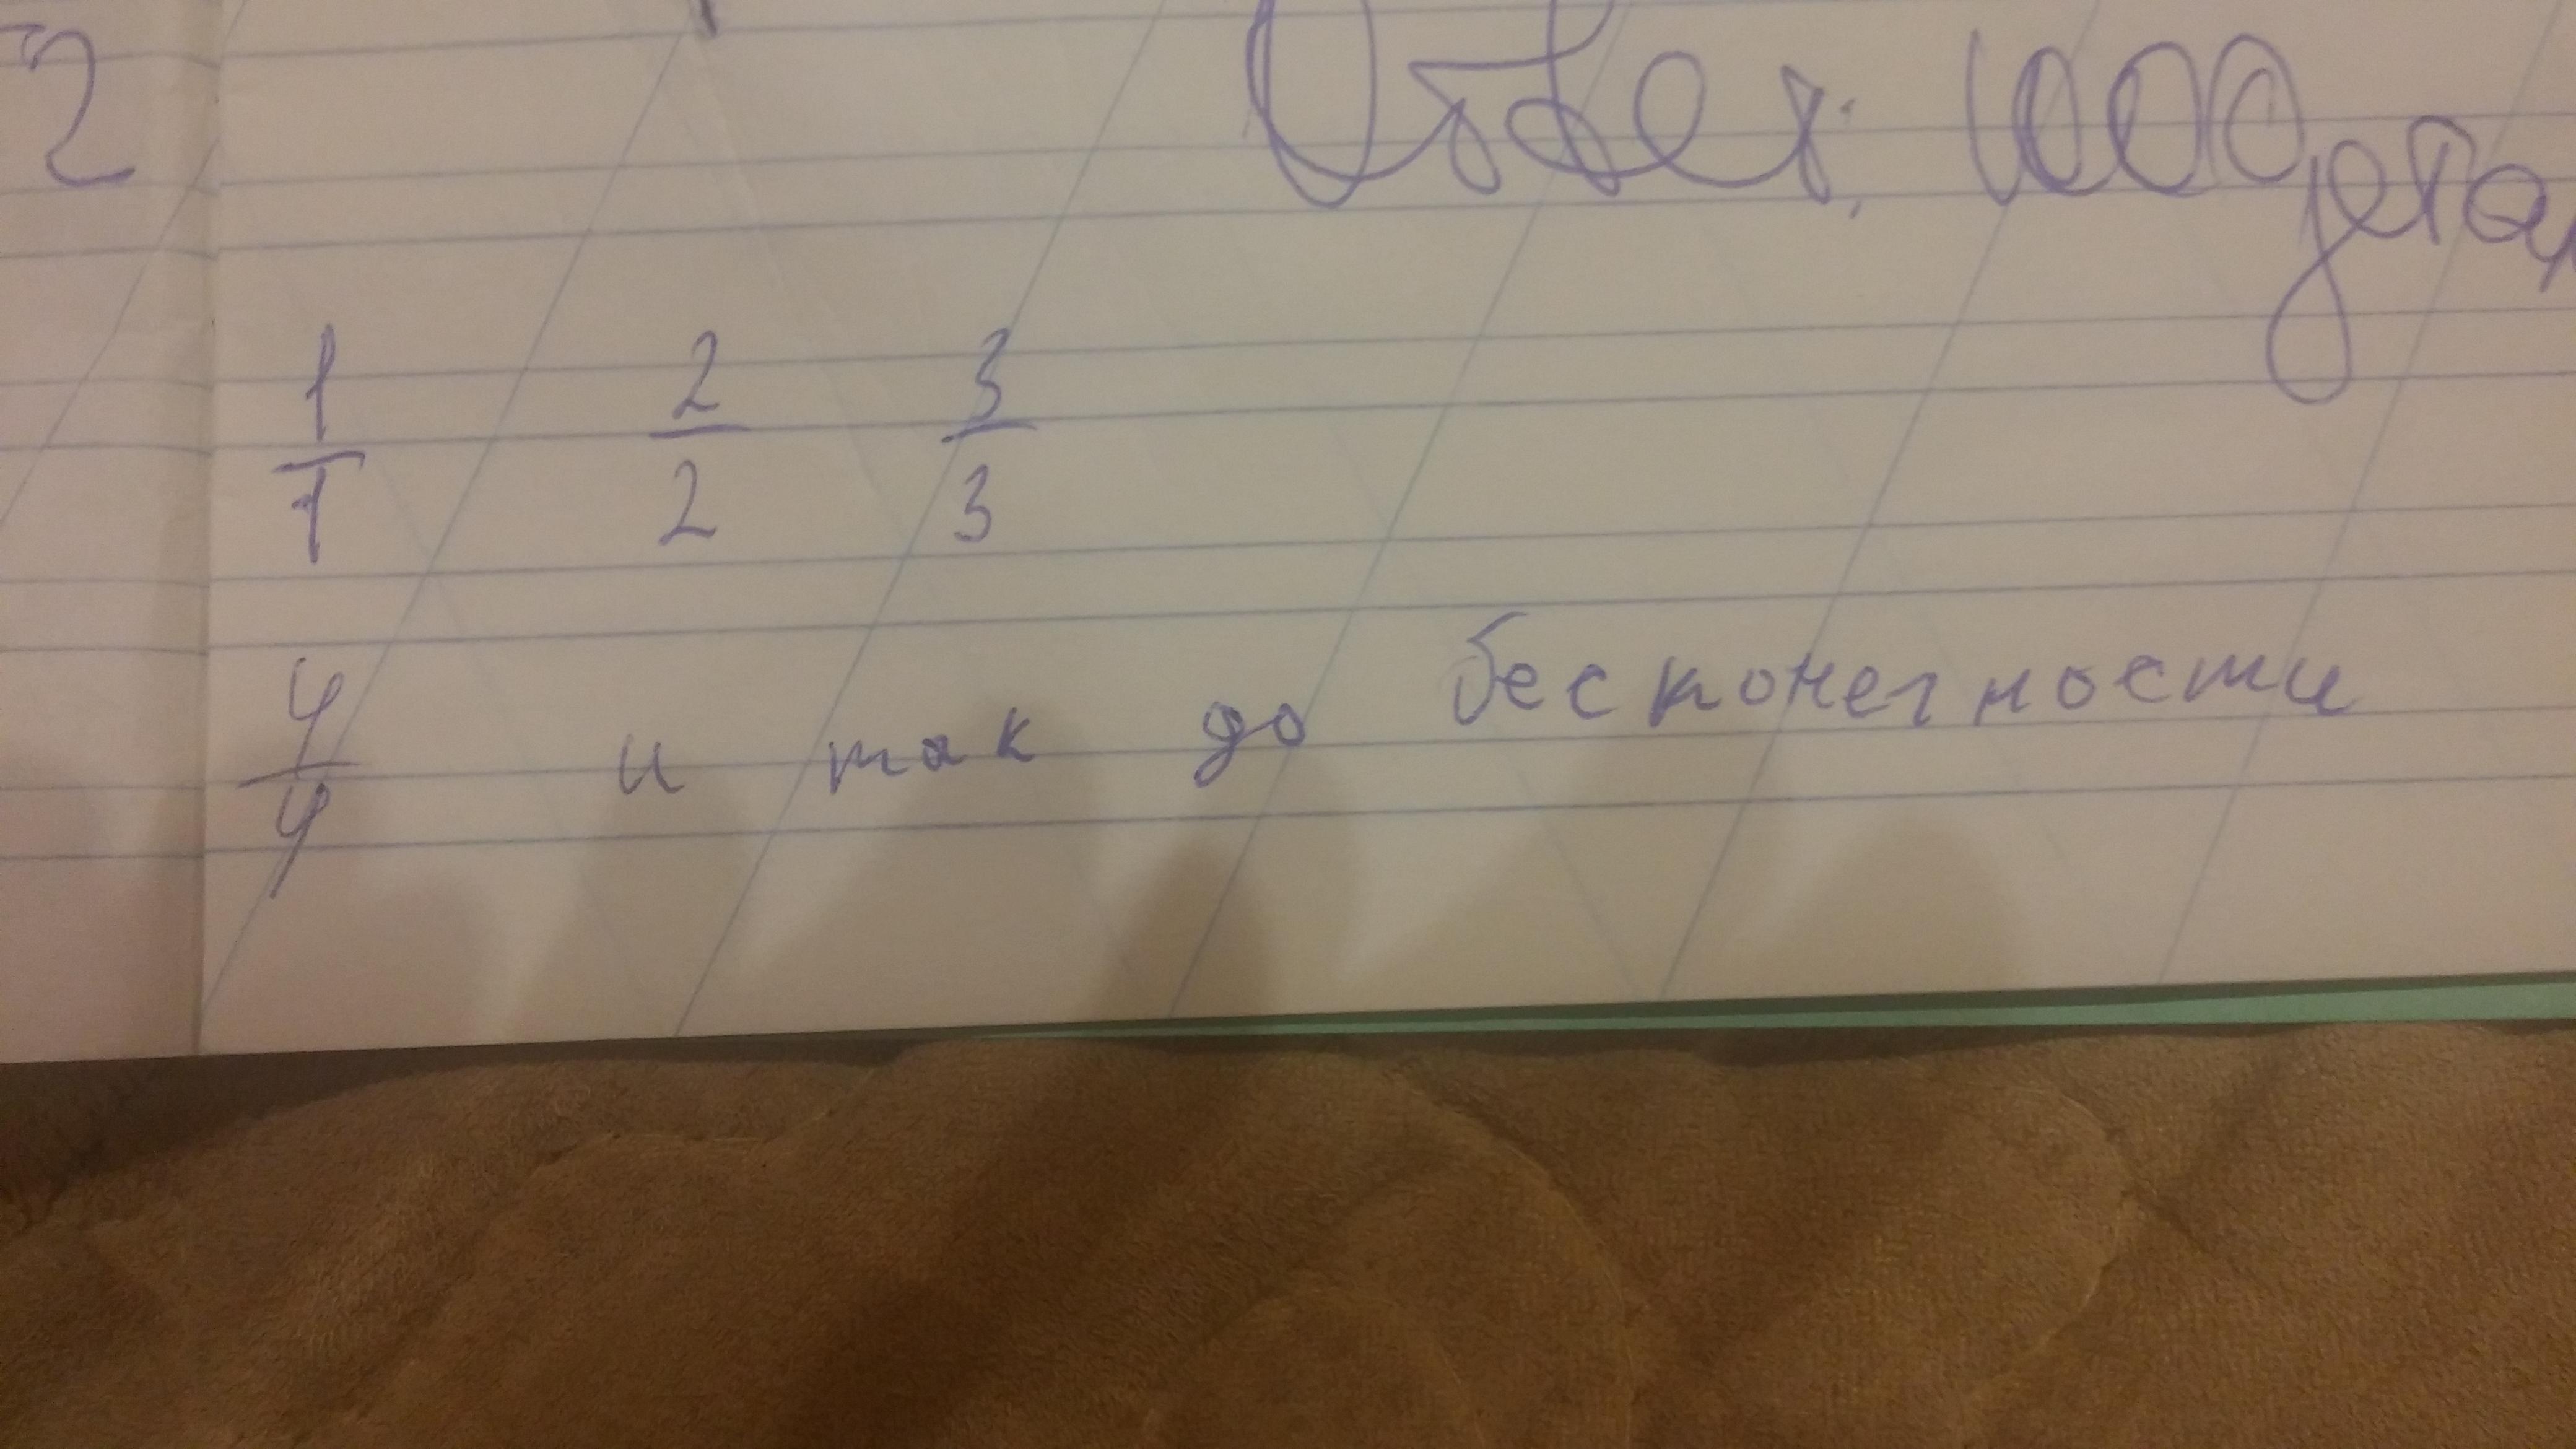 2
Ответ: 1000 дета
1/1 2/2 3/3
4/4 и так до бесконечности